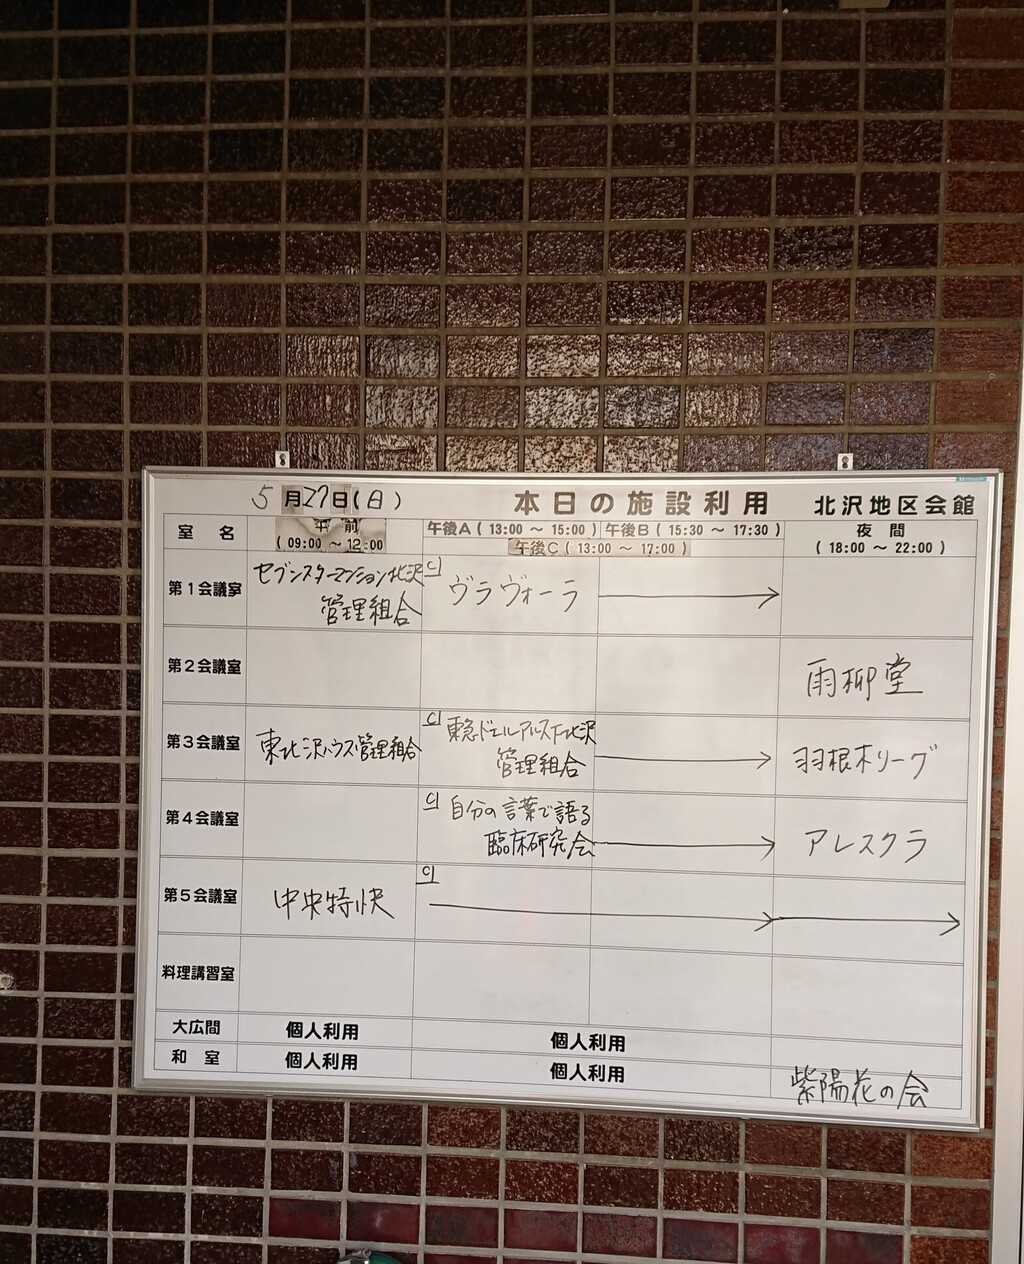 5月27日(日)
本日の施設利用
北沢地区会館
室 名
午 前
( 09:00 ～ 12:00
午後A ( 13:00 ～ 15:00 )
午後B ( 15:30 ～ 17:30 )
午後C ( 13:00 ～ 17:00 )
夜 間
( 18:00 ～ 22:00 )
第1会議室
セブンスターマンション北沢
管理組合
C
ヴラヴォーラ
第2会議室
雨柳堂
第3会議室
東北沢ハウス管理組合
C
東急ドエルアルス下北沢
管理組合
羽根木リーグ
第4会議室
C
自分の言葉で語る
臨床研究会
アレスクラ
第5会議室
中央特快
C
料理講習室
大広間
個人利用
個人利用
和 室
個人利用
個人利用
紫陽花の会